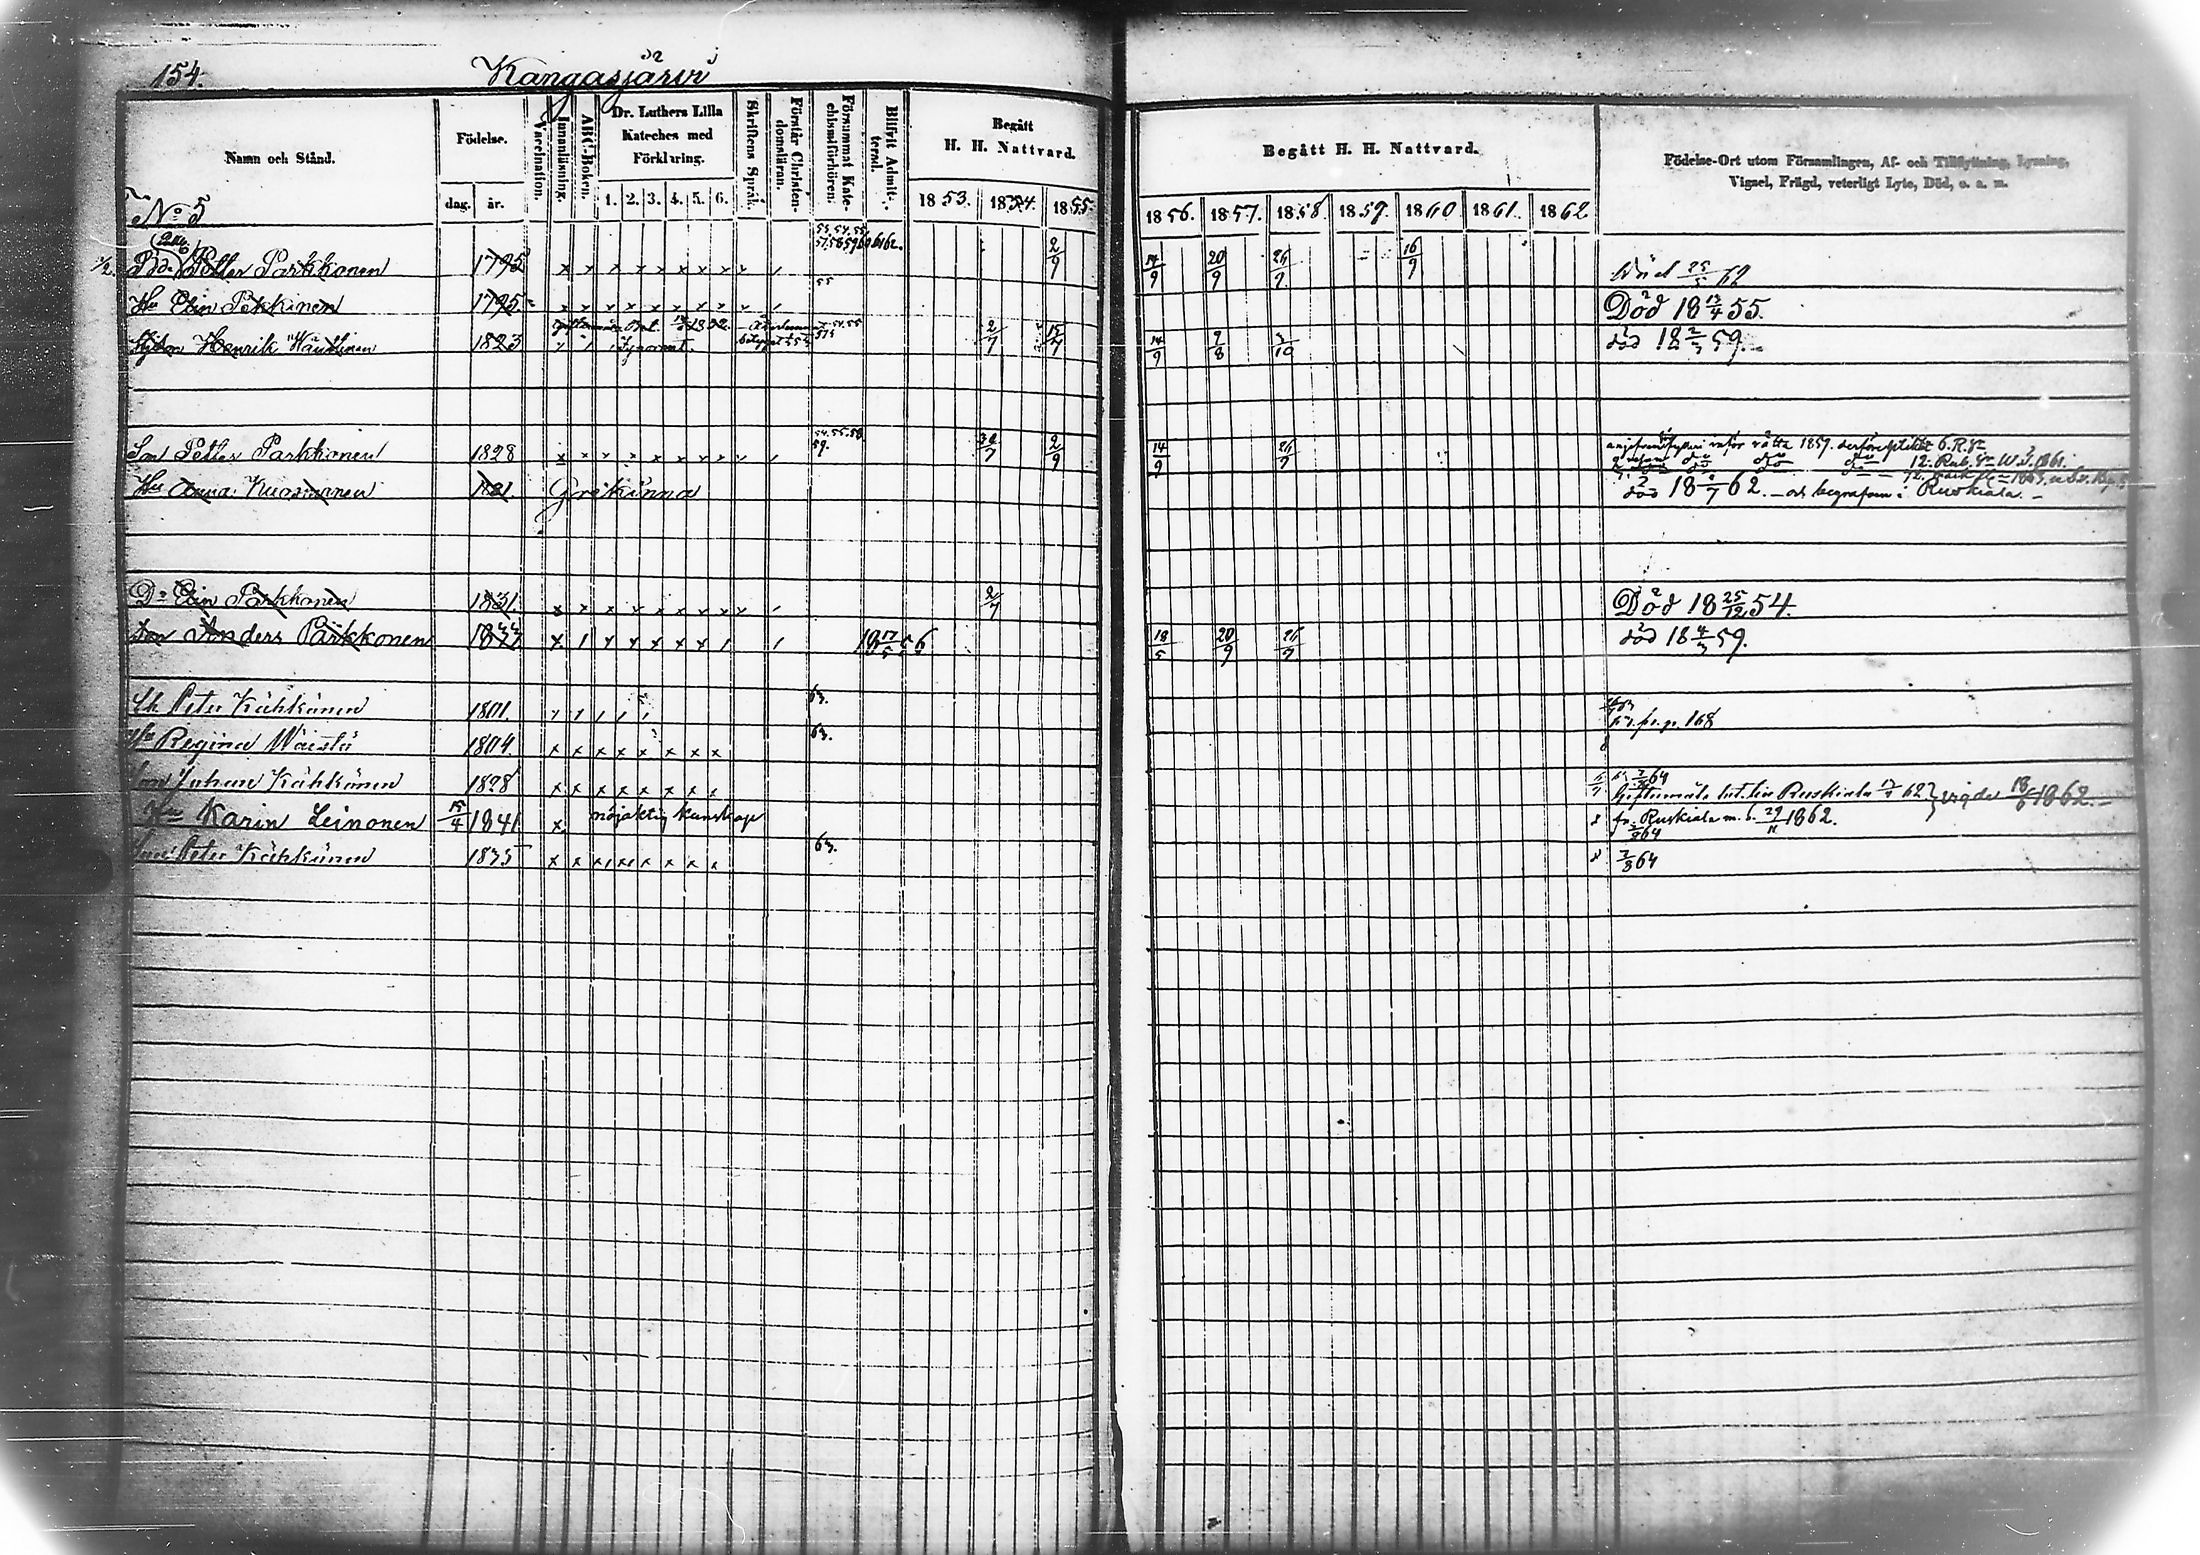 154.
Kangasjärvi
Namn och Stånd.
Födelse.
dag. år.
Vaccination.
Innanläsning.
ABC-Boken.
Dr. Luthers Lilla
Kateches med
Förklaring.
1. 2. 3. 4. 5. 6.
Skriftens Språk.
Förstår Christen-
domsläran.
Försummat Kate-
chismiförhören.
Blifvit Admit-
terad.
Begått
H. H. Nattvard.
1853. 1854. 1855.
Begått H. H. Nattvard.
1856. 1857. 1858. 1859. 1860 1861. 1862
Födelse-Ort utom Församlingen, Af- och Tillflyttning, Lysning,
Vigsel, Frägd, veterligt Lyte, Död, o. a. m.
No 5
Bd. Petter Parkkonen 1795 x x x x x x x x x 2/9 14/9 20/9 26/9 16/9 död 25/5 62
55
Hu Elin Pekkinen 1795 x x x x x x x x x Död 18 13/4 55.
Henrik 1823 Ignorant. 2/7 15/7 14/9 9/8 3/10 död 18 2/3 59.
54.55.58
59.
Son Petter Parkkonen 1828 x x x x x x x x x 30/7 2/9 14/9 26/9
Hu Anna Kuosmanen 1821 Grekinna död 18 /7 62. och begrafven i Ruskiala.
Dr Elin Parkkonen 1831 x x x x x x x x x 2/7 Död 18 25/12 54.
Son Anders Parkkonen x 1 x x x x x 1 18 17/5 56 18/5 20/9 26/9 död 18 4/3 59.
Petter Kähkönen 1801. 63. fr. p. 168
Hu Regina Wäistö 1804 x x x x x x x x 63.
Son Johan Kähkönen 1828 x x x x x x x x 64
Ruskiala 62 } vigde 18/6 1862.
Hu Karin Leinonen 15/4 1841 x. nöjaktig kunskap fr. Ruskiala m. b. 29/11 1862.
64
Son Peter Kähkönen 1835 x x x x x x x x 63. 7/8 64